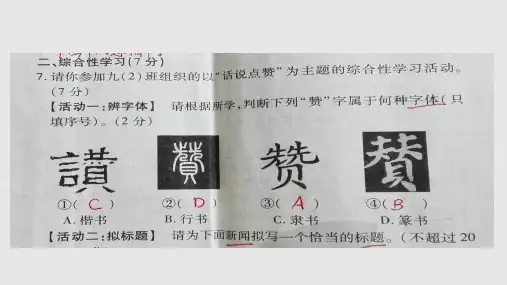 二、综合性学习(7 分)
7. 请你参加九(2)班组织的以“话说点赞”为主题的综合性学习活动。
(7 分)
【活动一:辨字体】 请根据所学,判断下列“赞”字属于何种字体(只
填序号)。(2 分)
讚 贊 赞 賛
①( C ) ②( D ) ③( A ) ④( B )
A. 楷书 B. 行书 C. 隶书 D. 篆书
【活动二:拟标题】 请为下面新闻拟写一个恰当的标题。(不超过 20